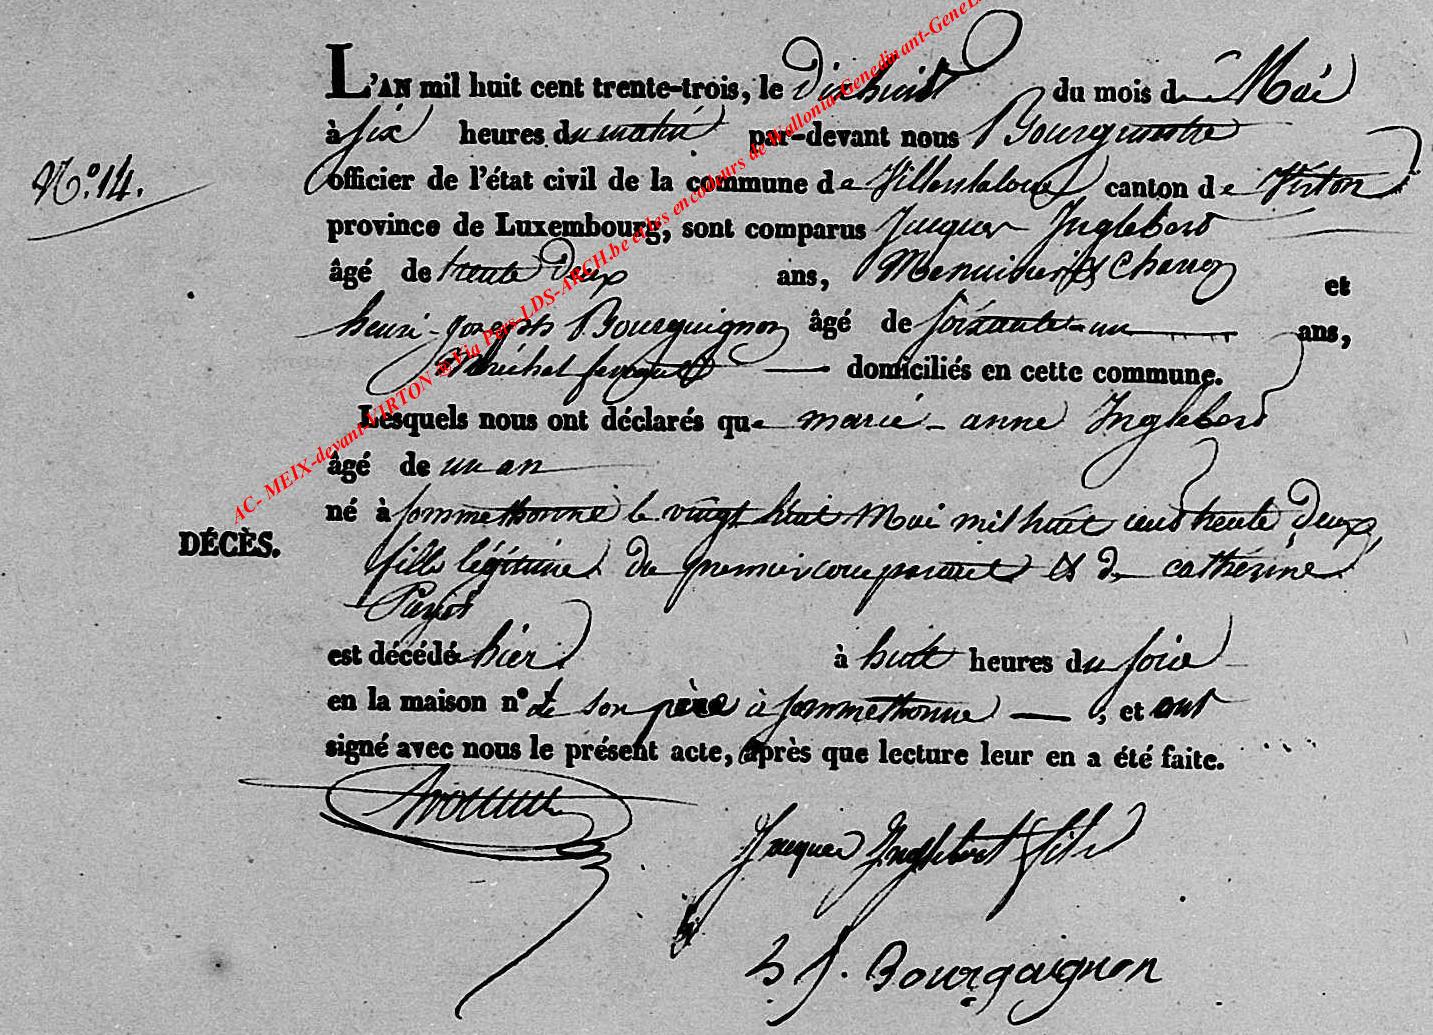 L'AN mil huit cent trente-trois, le dixhuit du mois de Mai
à six heures du matin par-devant nous Bourgmestre
N.° 14.
officier de l'état civil de la commune de Villerslaloue canton de Virton
province de Luxembourg, sont comparus Jacques Inglebert
âgé de trente deux ans, Menuisier & Charon et
henri-joseph Bourguignon âgé de soixante-un ans,
Maréchal ferrant domiciliés en cette commune.
Lesquels nous ont déclarés que marie-anne Inglebert
âgé de un an
né à sommethonne le vingt huit Mai mil huit cent trente deux,
DÉCÈS.
fille légitime du premier comparant et de catherine
est décédé hier à huit heures du soir
en la maison n° de son père à sommethonne, et ont
signé avec nous le présent acte, après que lecture leur en a été faite.
Jacques Inglebert fils
h j. Bourguignon
AC- MEIX-devant-VIRTON @Via Pers-LDS-ARCH.be et les encodeurs de Wallonia-Genedinant-GeneL